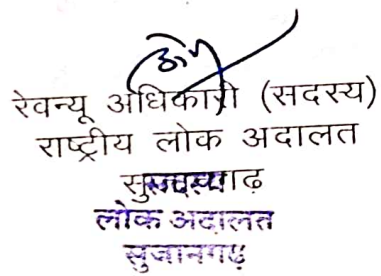 रेवन्यू अधिकारी (सदस्य)
राष्ट्रीय लोक अदालत
सुजानगढ़
लोक अदालत
सुजानगढ़